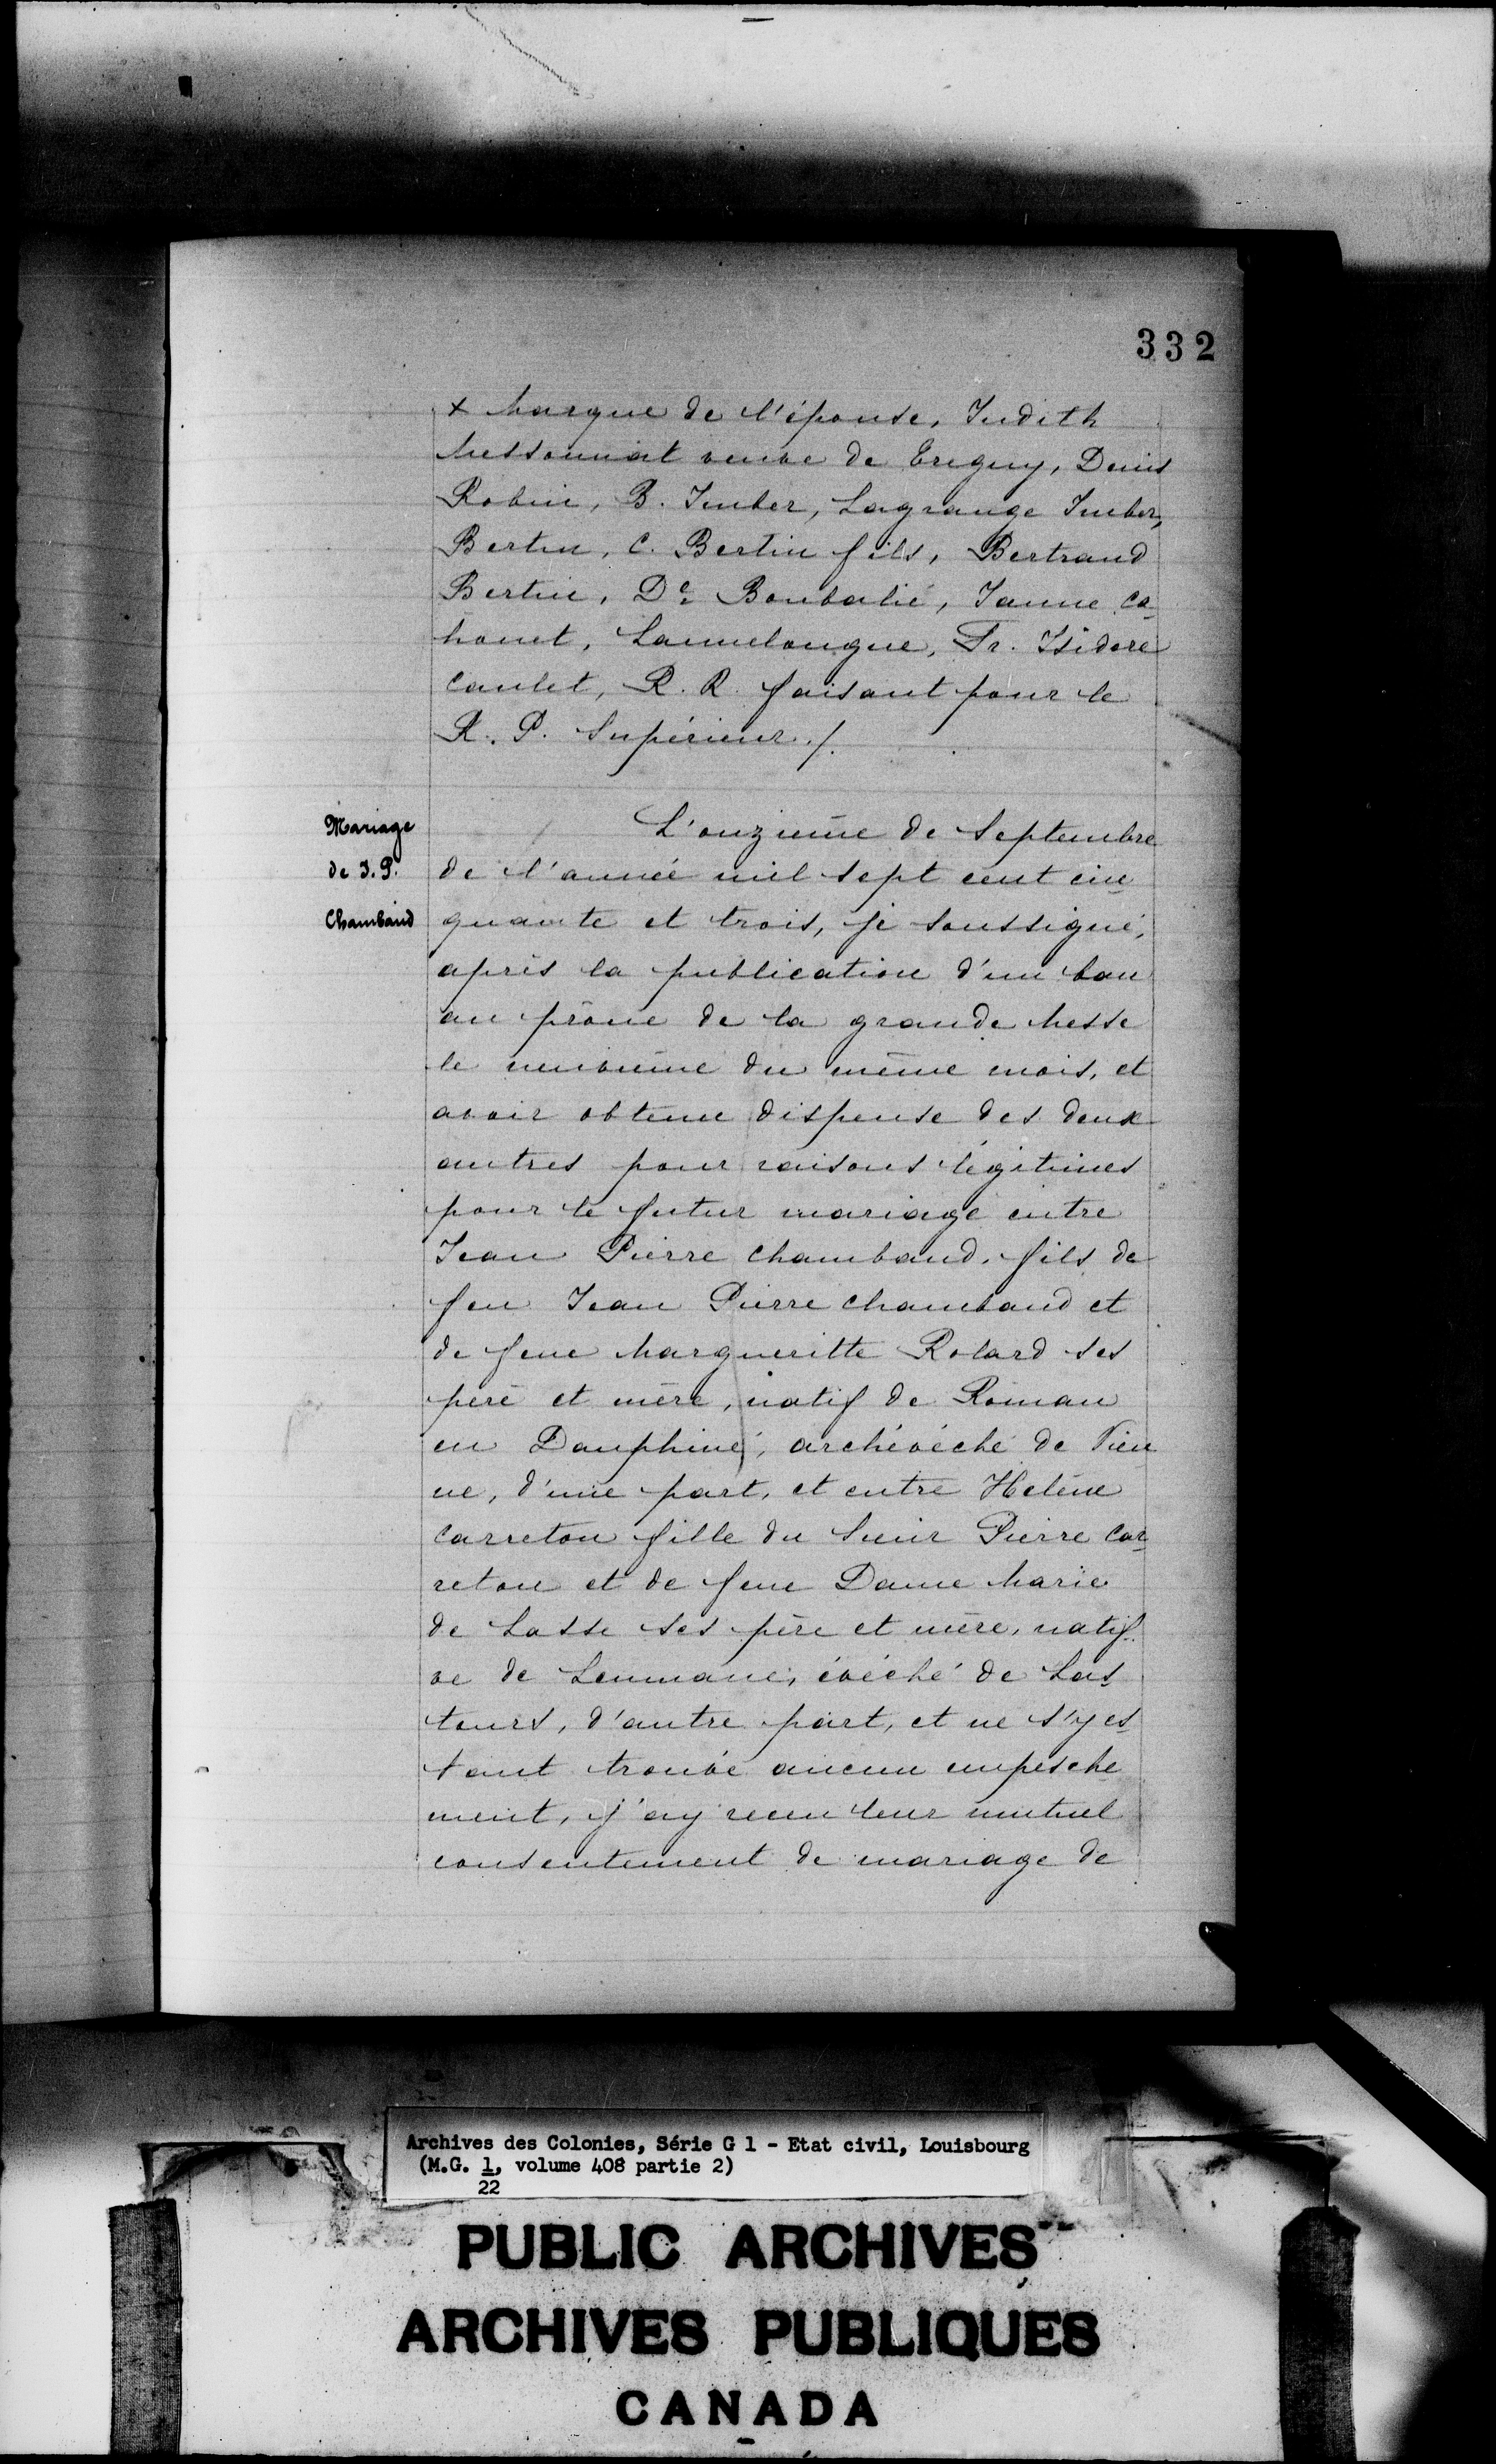 332
x Marque de l'épouse, Judith
Messonnat veuve de Eregny, Denis
Robin, B. Imber, Lagrange Imber,
Bertin, C. Bertin fils, Bertrand
Bertin, De Boubalié, Janne Ca-
houet, Lannelongue, Fr. Isidore
Caulet, R. R. faisant pour le
R. P. Supérieur ./.
Mariage
de J. P.
Chambaud
L'onzième de Septembre
de l'année mil sept cent cin-
quante et trois, je soussigné,
après la publication d'un ban
au prône de la grande Messe
le neuvième du même mois, et
avoir obtenu dispense des deux
autres pour raisons légitimes
pour le futur mariage entre
Jean Pierre Chambaud, fils de
feu Jean Pierre Chambaud et
de feue Margueritte Rolard ses
père et mère, natif de Roman
en Dauphiné, archévéché de Vien-
ne, d'une part, et entre Helène
Carreton fille du Sieur Pierre Car-
reton et de feue Dame Marie
de Lasse ses père et mère, natif-
ve de Leumane, évéché de Las-
tours, d'autre part, et ne s'y es-
tant trouvé aucun empesche
ment, j'ay receu leur mutuel
consentement de mariage de
Archives des Colonies, Série G 1 - Etat civil, Louisbourg
(M.G. 1, volume 408 partie 2)
22
PUBLIC ARCHIVES
ARCHIVES PUBLIQUES
CANADA